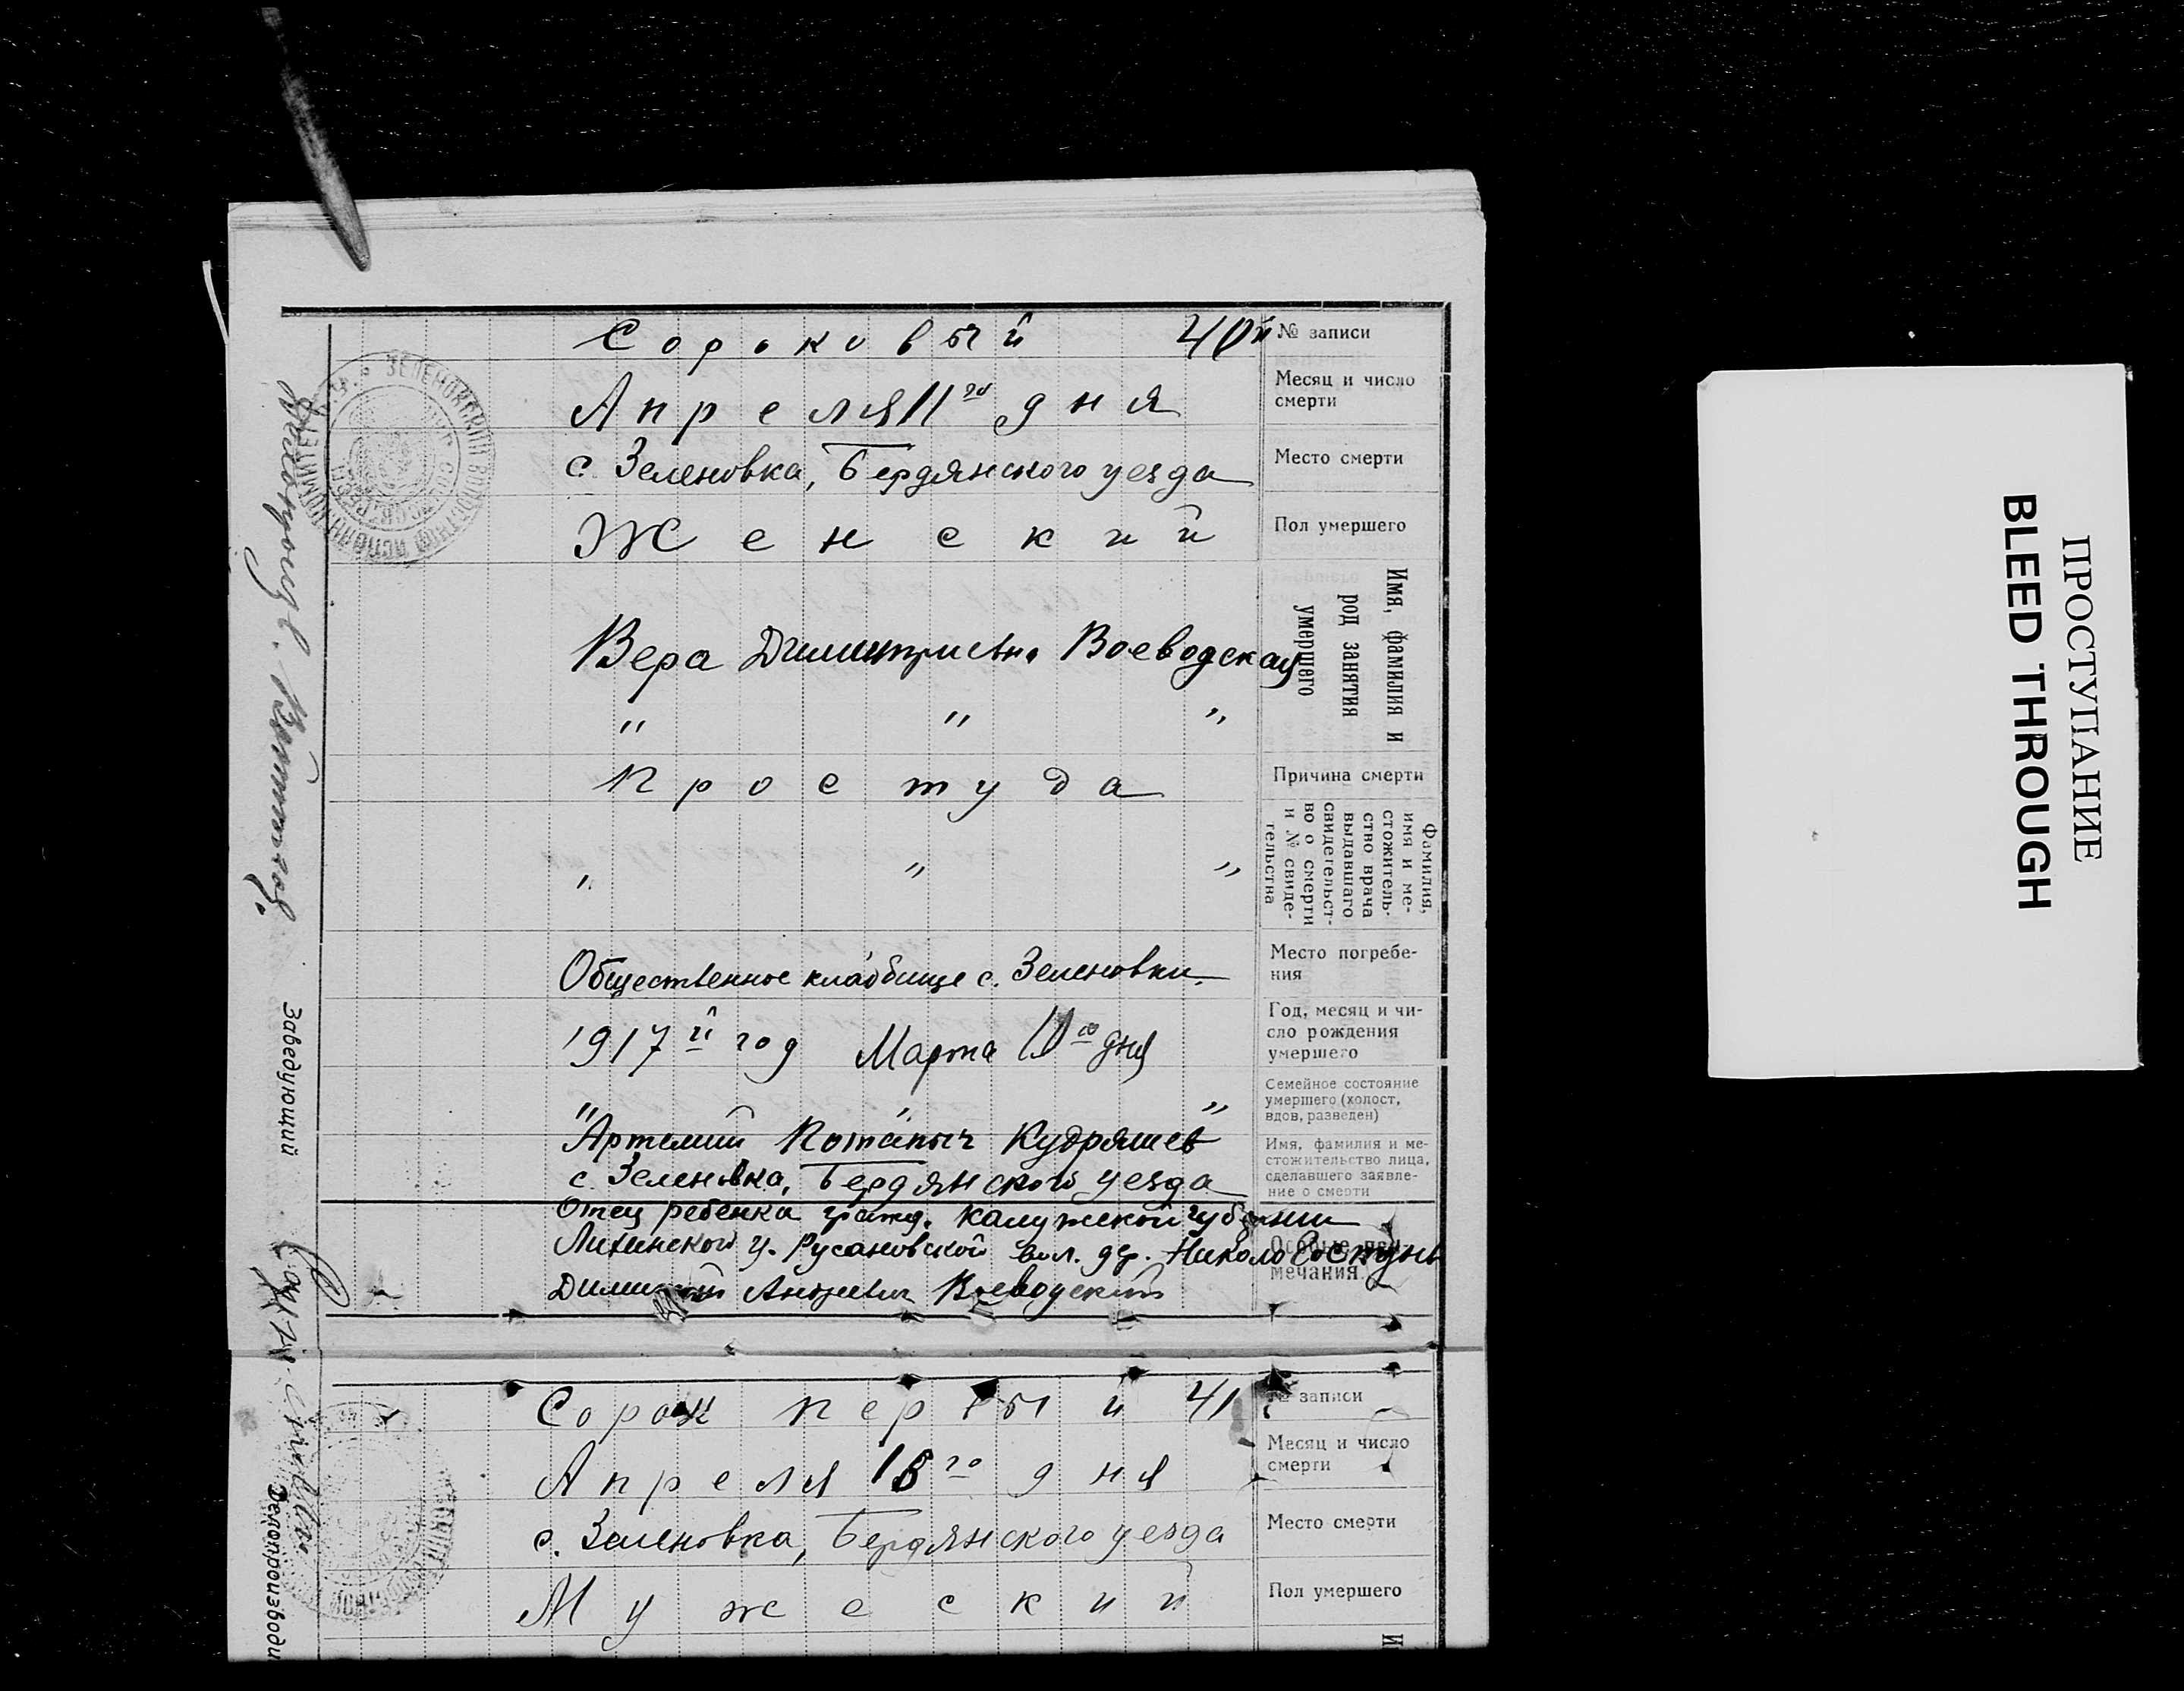 Сороковый 40й № записи
Апреля 11го дня Месяц и число
смерти
с. Зеленовка, Бердянского уезда Место смерти
Женский Пол умершего
Вера Димитриевна Воеводская
" " "
Имя, фамилия и
род занятия
умершего
Простуда Причина смерти
" " "
Фамилия,
имя и ме-
стожитель-
ство врача
выдавшаго
свидетельст-
во о смерти
и № свиде-
тельства
Общественное кладбище с. Зеленовки. Место погребе-
ния
1917й год Марта дня Год, месяц и чи-
сло рождения
умершего
" " " Семейное состояние
умершего (холост,
вдов, разведен)
Артемий Кудряшев
с. Зеленовка, Бердянского уезда
Имя, фамилия и ме-
стожительство лица,
сделавшего заявле-
ние о смерти
Отец ребенка гражд. Калужской губернии
у. Русановской вол. дер. Николо
Воеводский
мечания
Заведующий
Сорок первый 41 № записи
Апреля го дня Месяц и число
смерти
с. Зеленовка, Бердянского уезда Место смерти
Мужеский Пол умершего
Делопроизводи
ПРОСТУПАНИЕ
BLEED THROUGH